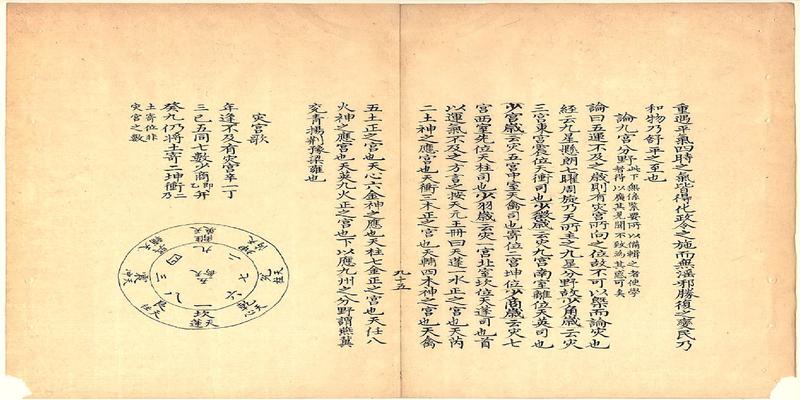 重過平氣四時之氣皆得化政令之施而無淫邪勝復之變民乃
和物乃舒平之至也
論九宮分野
論曰五運不及之歲則有灾宮所向之位故不可以槩而論灾也
經云九星懸朗七曜周旋乃天所主之九星分野故少角歲云灾
三宮東宮震位天衝司也少徵歲云灾九宮南室離位天英司也
少宮歲云灾五宮中室天禽司也寄位二宮坤位少商歲云灾七
宮西室兌位天柱司也少羽歲云灾一宮北室坎位天蓬司也首
以運氣不及之方言之按天元玉冊曰天蓬一水正之宮也天芮
二土神之應宮也天衝三木正之宮也天輔四木神之宮也天禽
九十五
五土正之宮也天心六金神之應也天柱七金正之宮也天任八
火神之應宮也天英九火正之宮也下以應九州之分野謂燕冀
兗青揚荆豫梁雍也
灾宮歌
年逢不及有灾宮辛一丁
三己五同七數少商乙即并
癸九仍將土寄二坤衝乃
土寄位非
灾宮之數
九
離
天英
四
二
三
震
五
七
兌
八
六
一
坎
天蓬